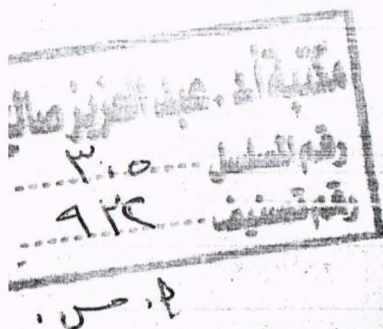 مكتبة أ.د. عبد العزيز صالح
رقم المسلسل ٣٠٥
رقم تصنيف ٩٣٢
م. ص.